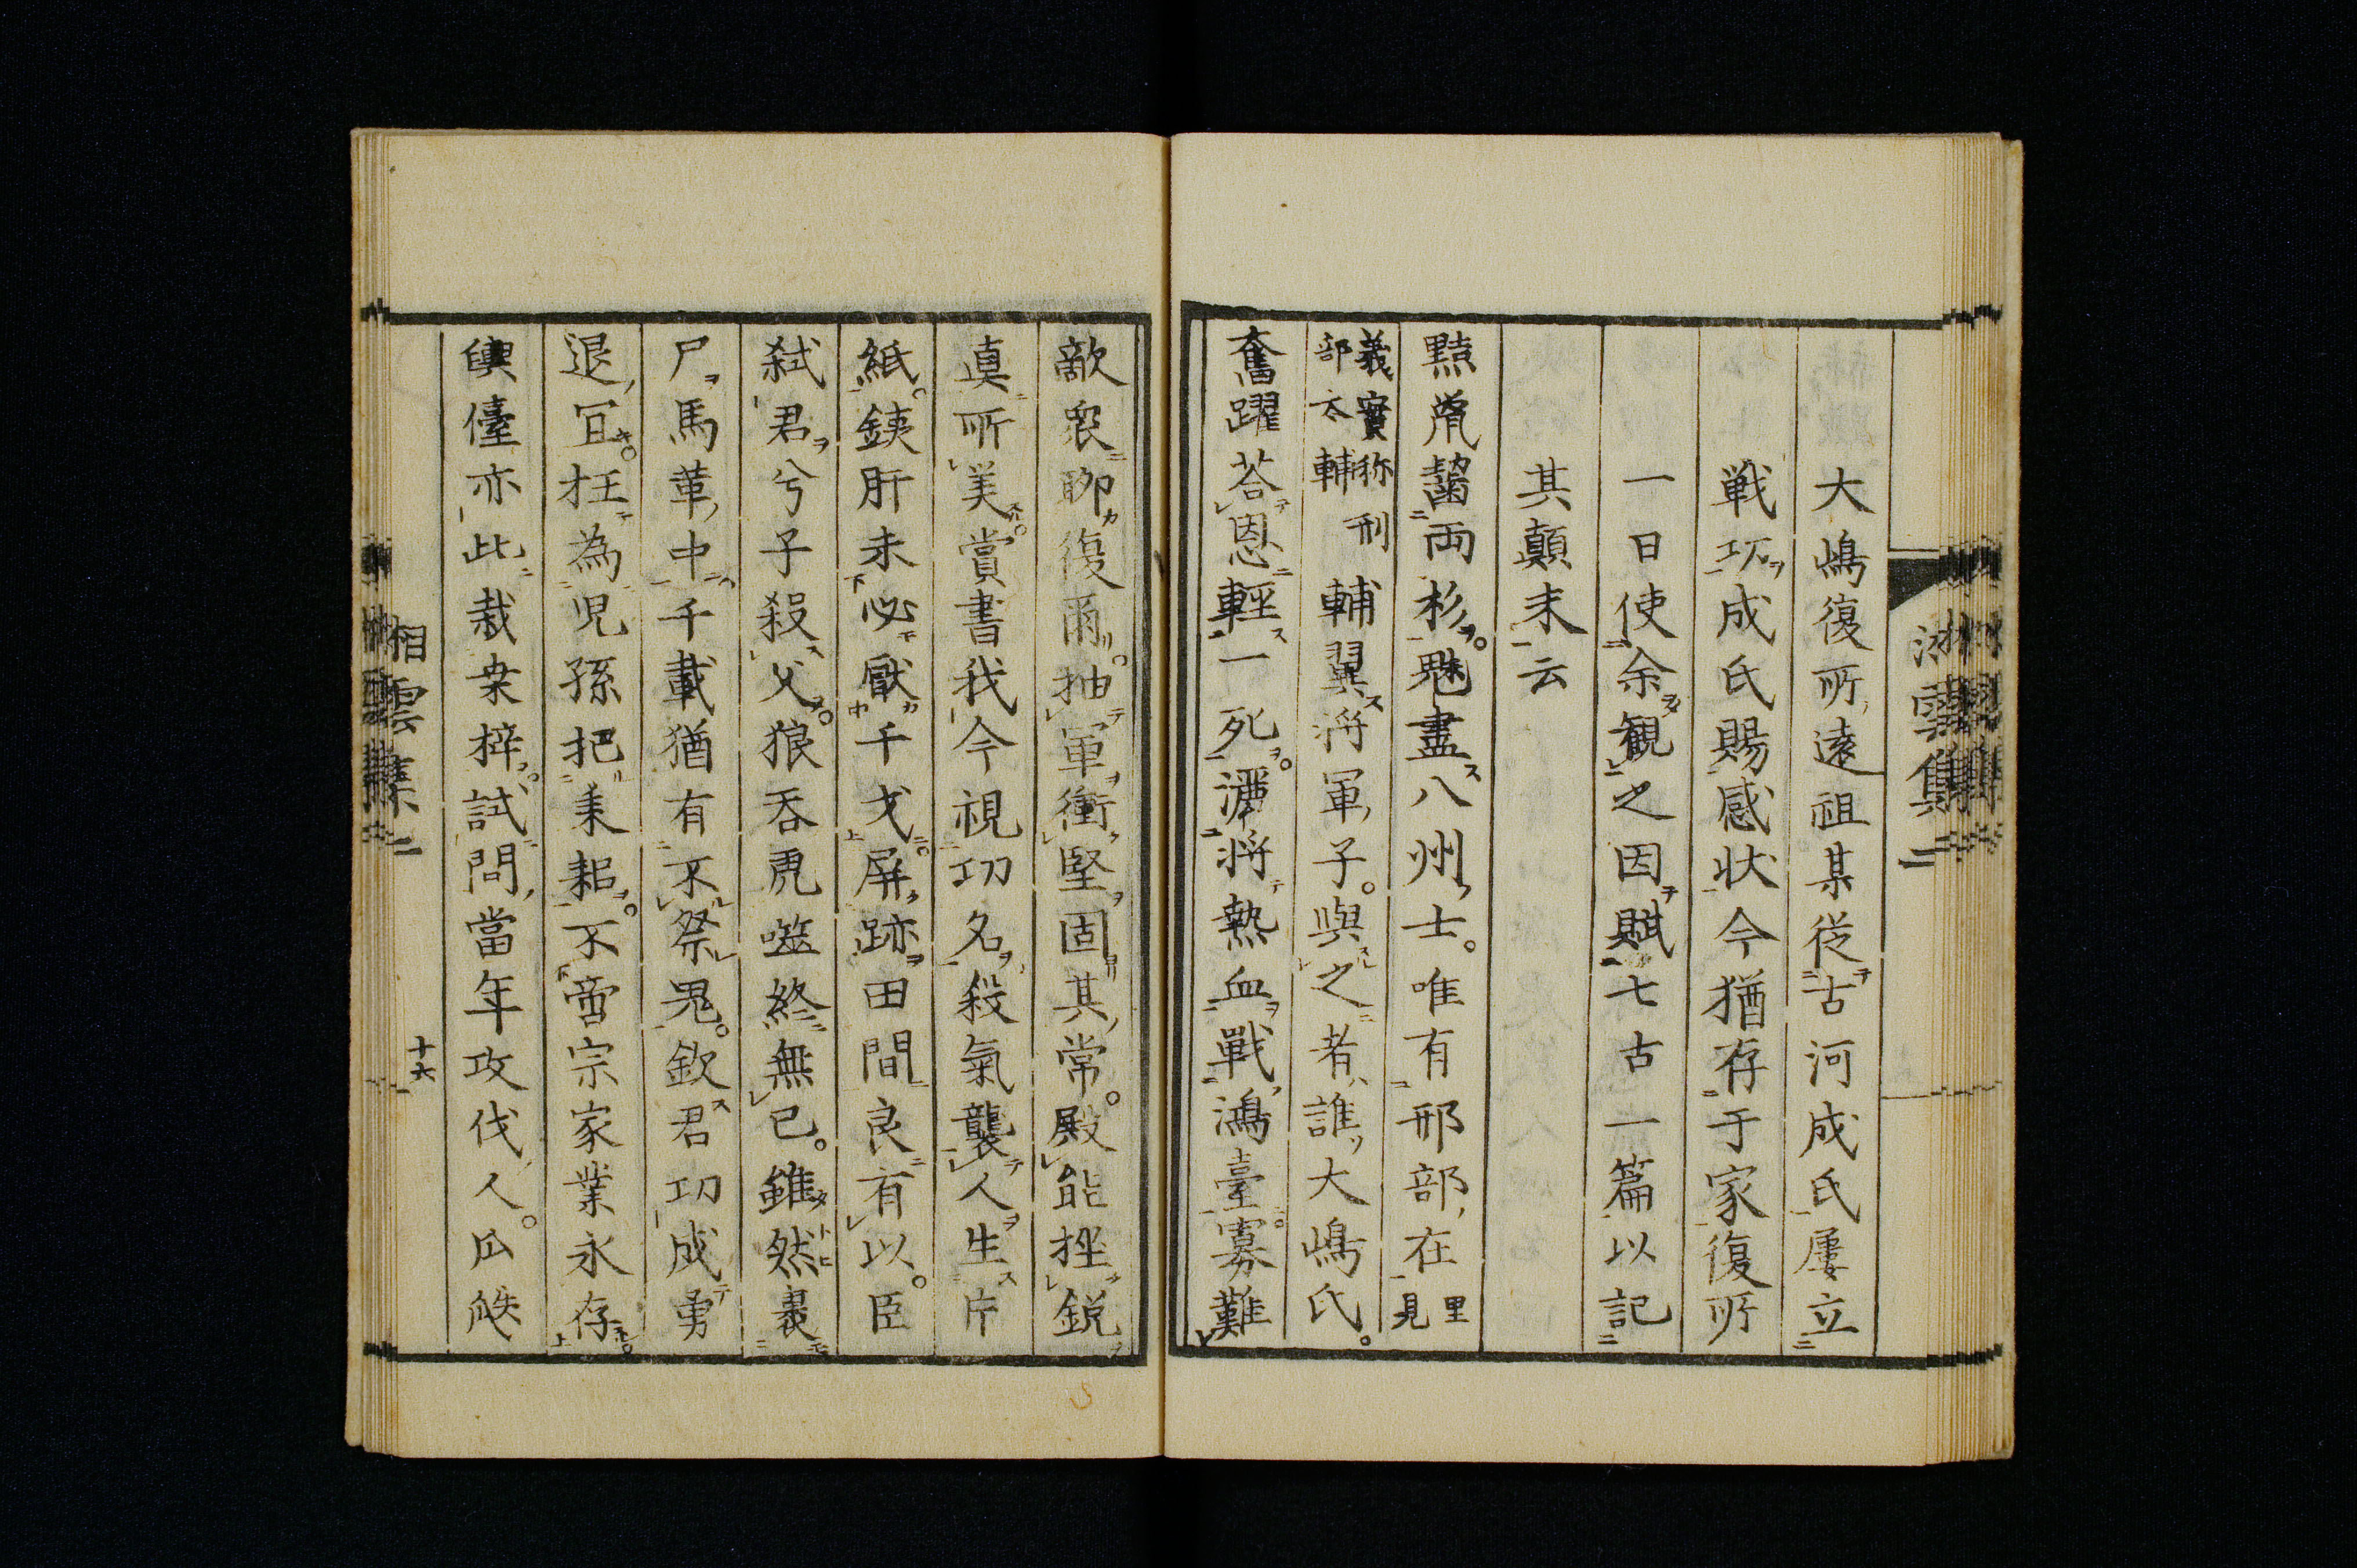 大嶋復所遠祖某従古河成氏屢立
戦功成氏賜感状今猶存于家復所
一日使余観之因賦七古一篇以記
其顛末云
黠胄齧両杉魁盡八州士唯有邢部在里見
義實称刑部太輔輔翼将軍子與之者誰大嶋氏
奮躍荅恩輕一死洒将熱血戰鴻臺寡難
敵衆聊復爾抽軍衝堅固其常殿能挫鋭
真所美賞書我今視功名殺氣襲人生片
紙銕肝未必厭干戈屏跡田間良有以臣
弑君兮子殺父狼呑虎噬終無已雖然裹
尸馬革中千載猶有不祭鬼欽君功成勇
退冝枉為児孫把耒耜不啻宗家業永存
輿儓亦此栽桒梓試問當年攻伐人瓜瓞
湘雲集二
十六